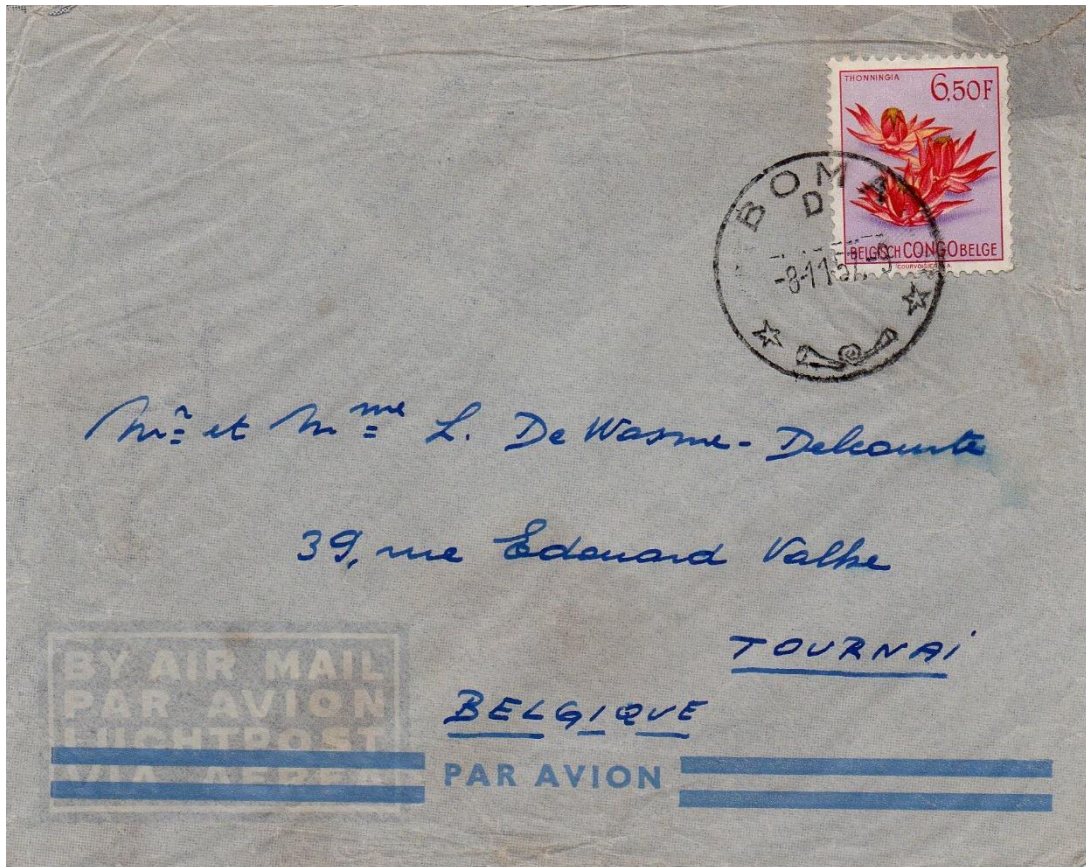 THONNINGIA
6.50F
BELGISCH CONGO BELGE
COURVOISIER S.A.
BOMA
D
-8-11 57.-9
Mr et Mme L. De Wasme-Delcourte
39, rue Edouard Valke
TOURNAi
BELGIQUE
BY AIR MAIL
PAR AVION
LUCHTPOST
VIA AEREA
PAR AVION